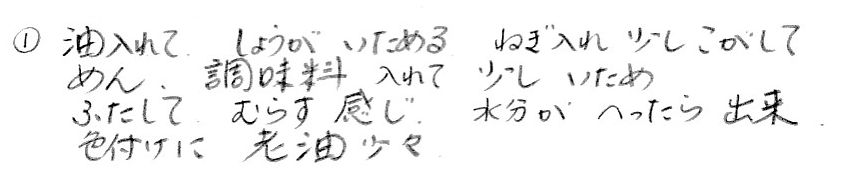 ① 油入れて しょうが いためる ねぎ入れ 少し こがして
めん、調味料 入れて 少し いため
ふたして むらす 感じ 水分が へったら 出来.
色付けに 老油少々